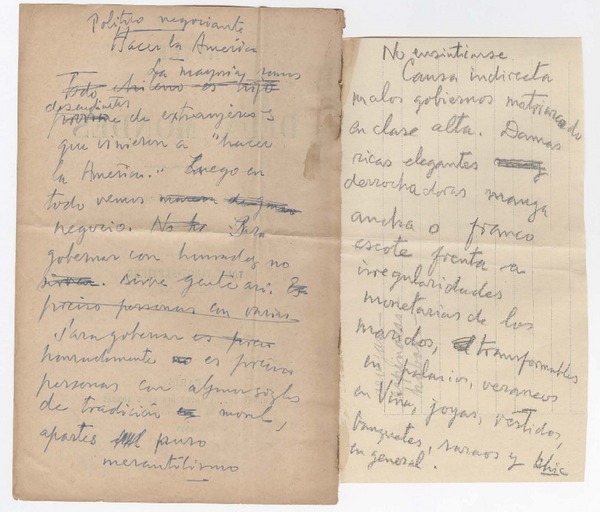 Político negociante
Hacer la América
La mayoría somos
Todo chileno es hijo
descendientes
de extranjeros
que vinieron a "hacer
la América". Luego en
todo vemos
negocio. No ha Para
gobernar con honradez no
sirve gente así. Es
preciso personas con varios
Para gobernar es preciso
honradamente no es preciso
personas con algunos siglos
de tradición moral,
apartes puro
mercantilismo
No ensintiarse
Causa indirecta
malos gobiernos matriarcado
en clase alta. Damas
ricas elegantes
derrochadoras manga
ancha o franco
escote frente a
irregularidades
monetarias de los
maridos, transformables
en palacios, veraneos
en Viña, joyas, vestidos,
banquetes, saraos y chic
en general.